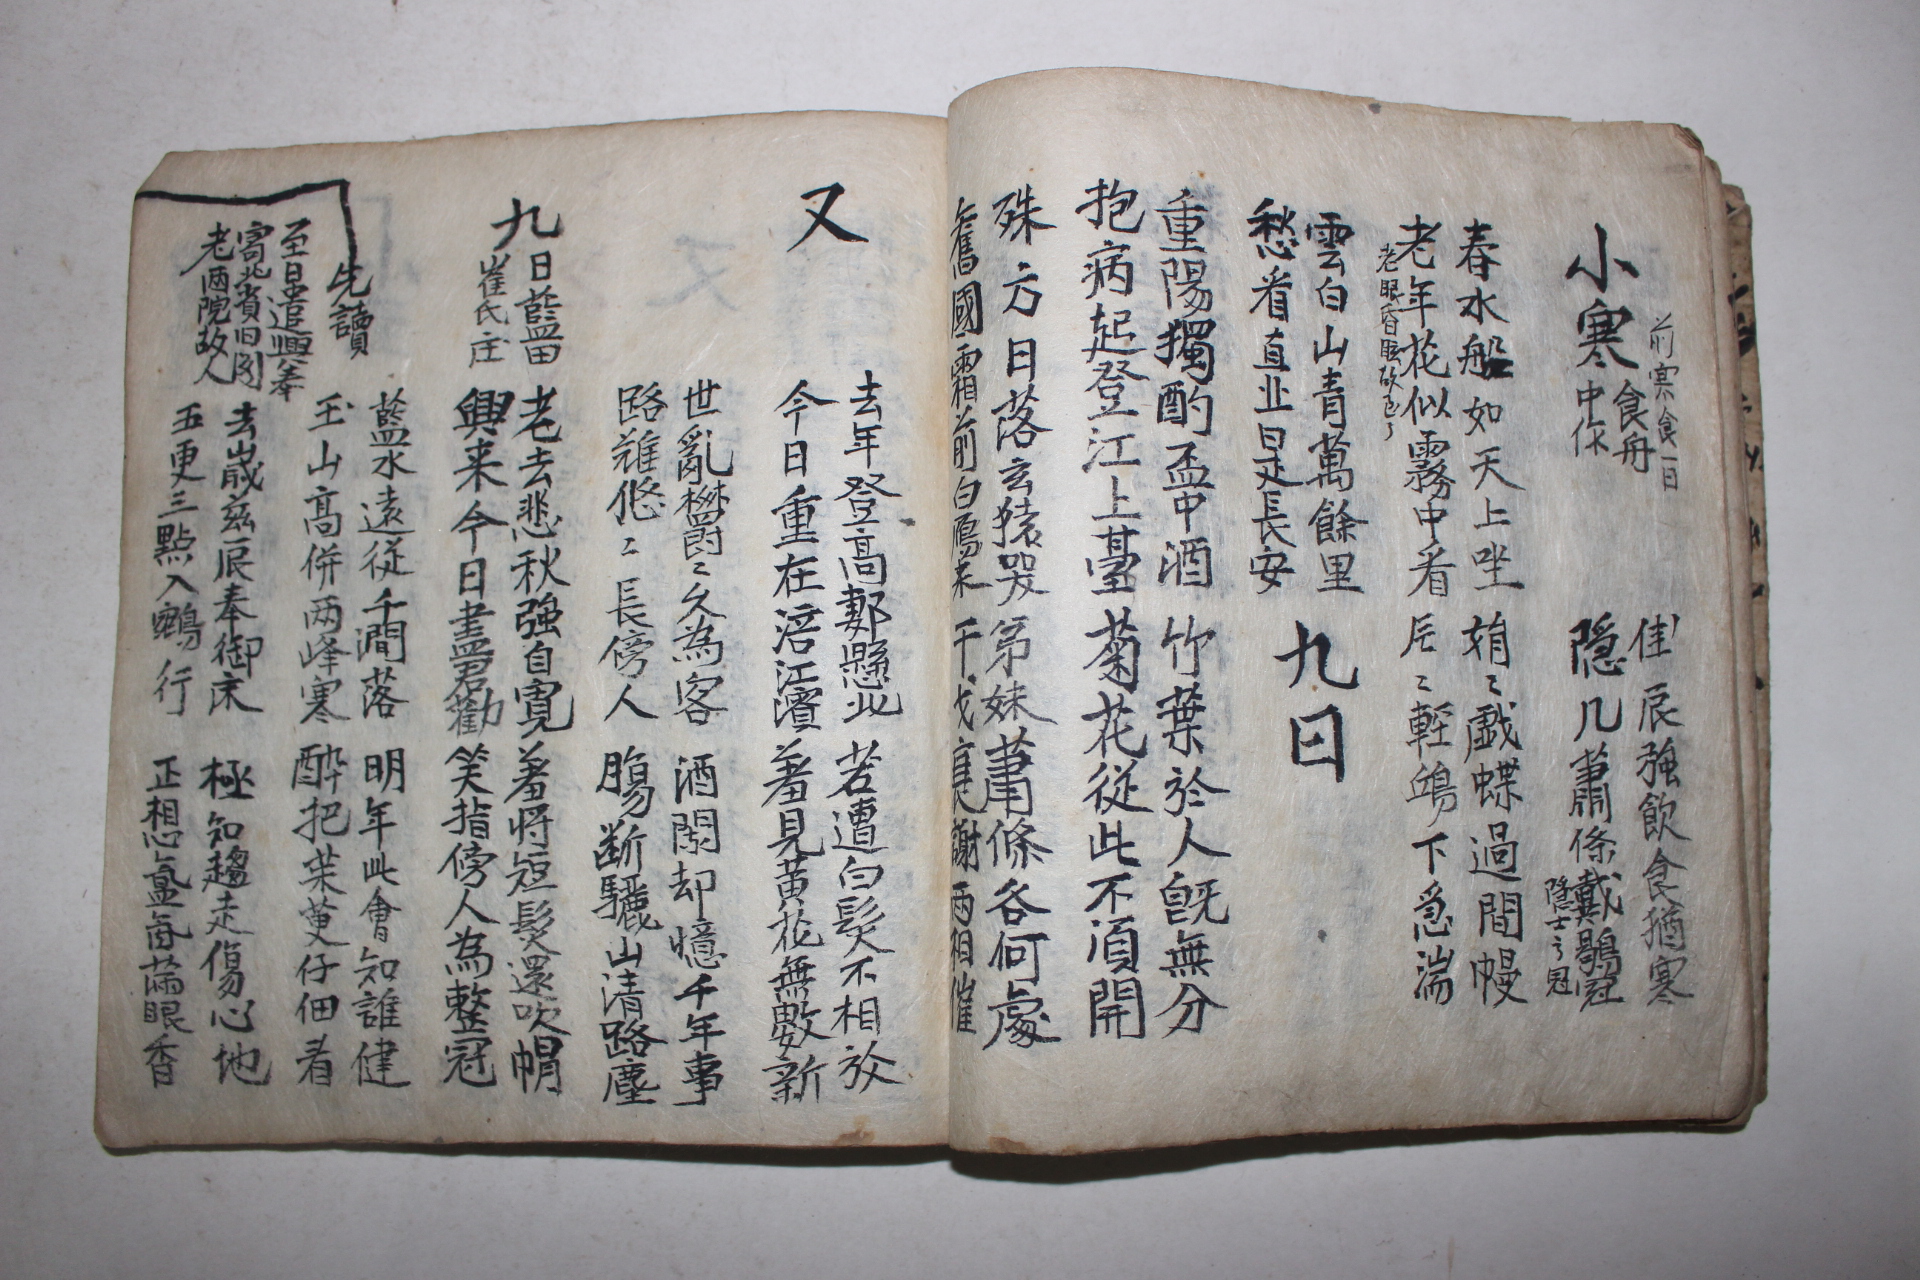 小寒食舟中作
前寒食一日
佳辰強飲食猶寒
隱几蕭條戴鶡冠
隱士之冠
春水船如天上坐 娟〻戲蝶過間幔
老年花似霧中看 片〻輕鷗下急湍
老眼昏眩故云
雲白山青萬餘里
愁看直北是長安
九日
重陽獨酌盃中酒 竹葉於人旣無分
抱病起登江上臺 菊花從此不須開
殊方日落玄猿哭 弟妹蕭條各何處
舊國霜前白鴈來 干戈衰謝兩相催
又
去年登高郪縣北 若遭白髮不相放
今日重在涪江濱 羞見黃花無數新
世亂欝〻久為客 酒闌却憶千年事
路難悠〻長傍人 腸斷驪山清路塵
九日藍田
崔氏庄
老去悲秋強自寬 羞將短髮還吹帽
興来今日盡君勸 笑指傍人為整冠
藍水遠從千間落 明年此會知誰健
玉山高併兩峰寒 醉把茱萸仔佃看
先讀
至日遣興奉
寄北省旧閣
老兩院故人
去歲玆辰奉御床 極知趨走傷心地
五更三點入鵷行 正想氤氳滿眼香